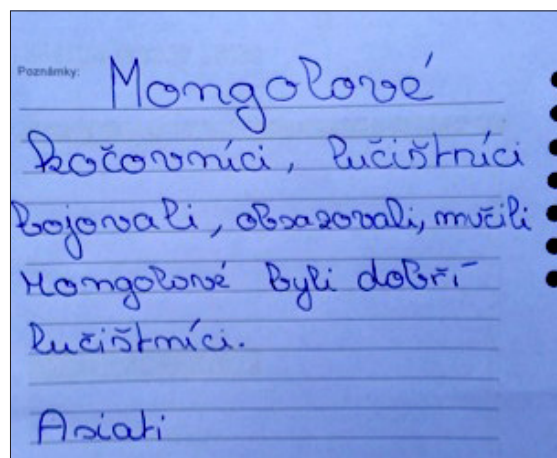 Poznámky:
Mongolové
kočovníci, lučištníci
bojovali, obsazovali, mučili
Mongolové byli dobří
lučištníci.
Asiati